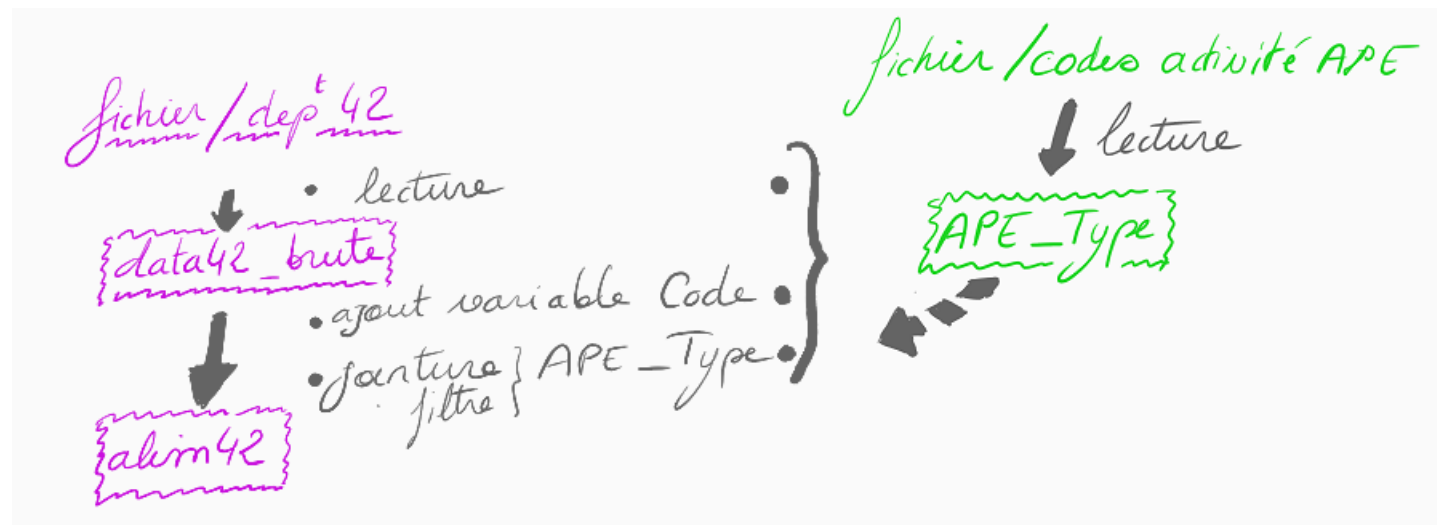 fichier/dept 42
• lecture
data42_brute
• ajout variable Code •
• jointure } APE_Type •
filtre
alim42
fichier/codes activité APE
lecture
APE_Type